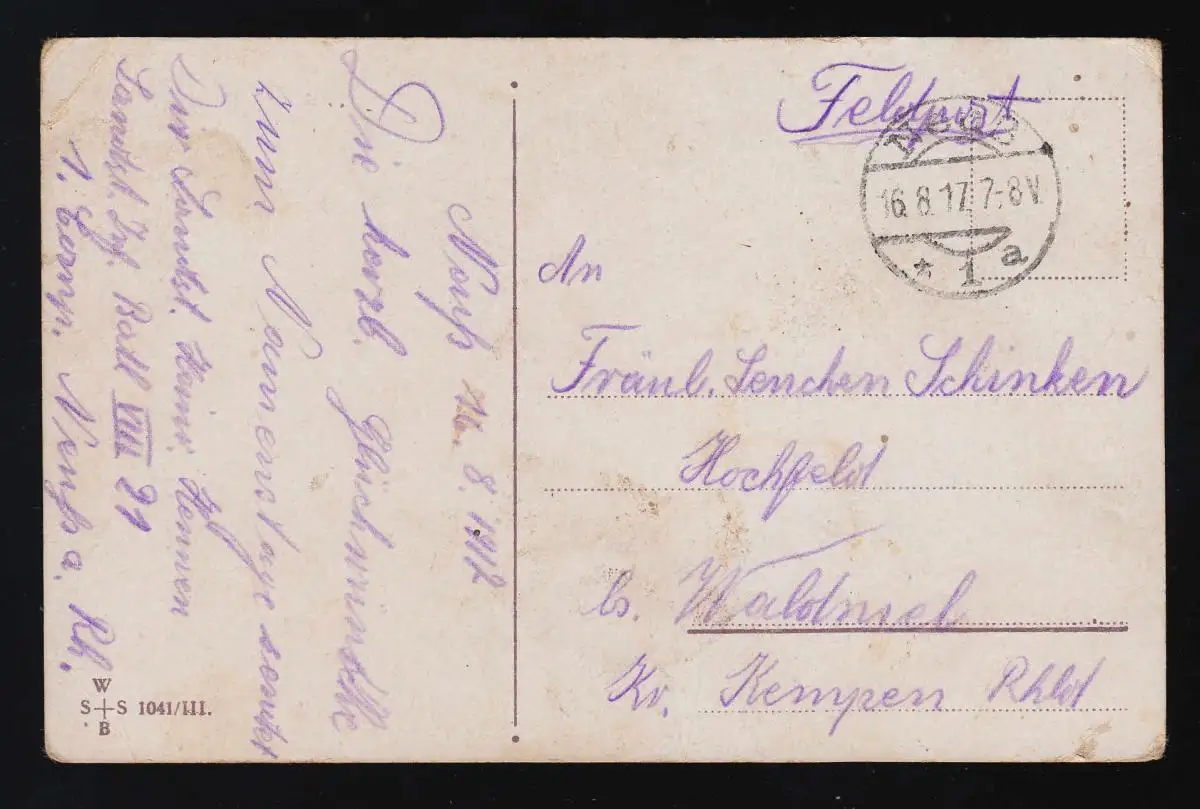 Feldpost
Neuß
16.8.17. 7-8V
* 1 a
An
Fräul. Lenchen Schinken
Hochfeld
bs. Waldniel
Kr. Kempen Rhld
Neuß 16. 8. 1917
Die herzl. Glückwünsche
zum Namenstage sendet
Dir Landst. Heinr. Hommen
Landst. Inf. Batl VIII 21
1. Comp. Neuß a. Rh.
W
S S 1041/III.
B